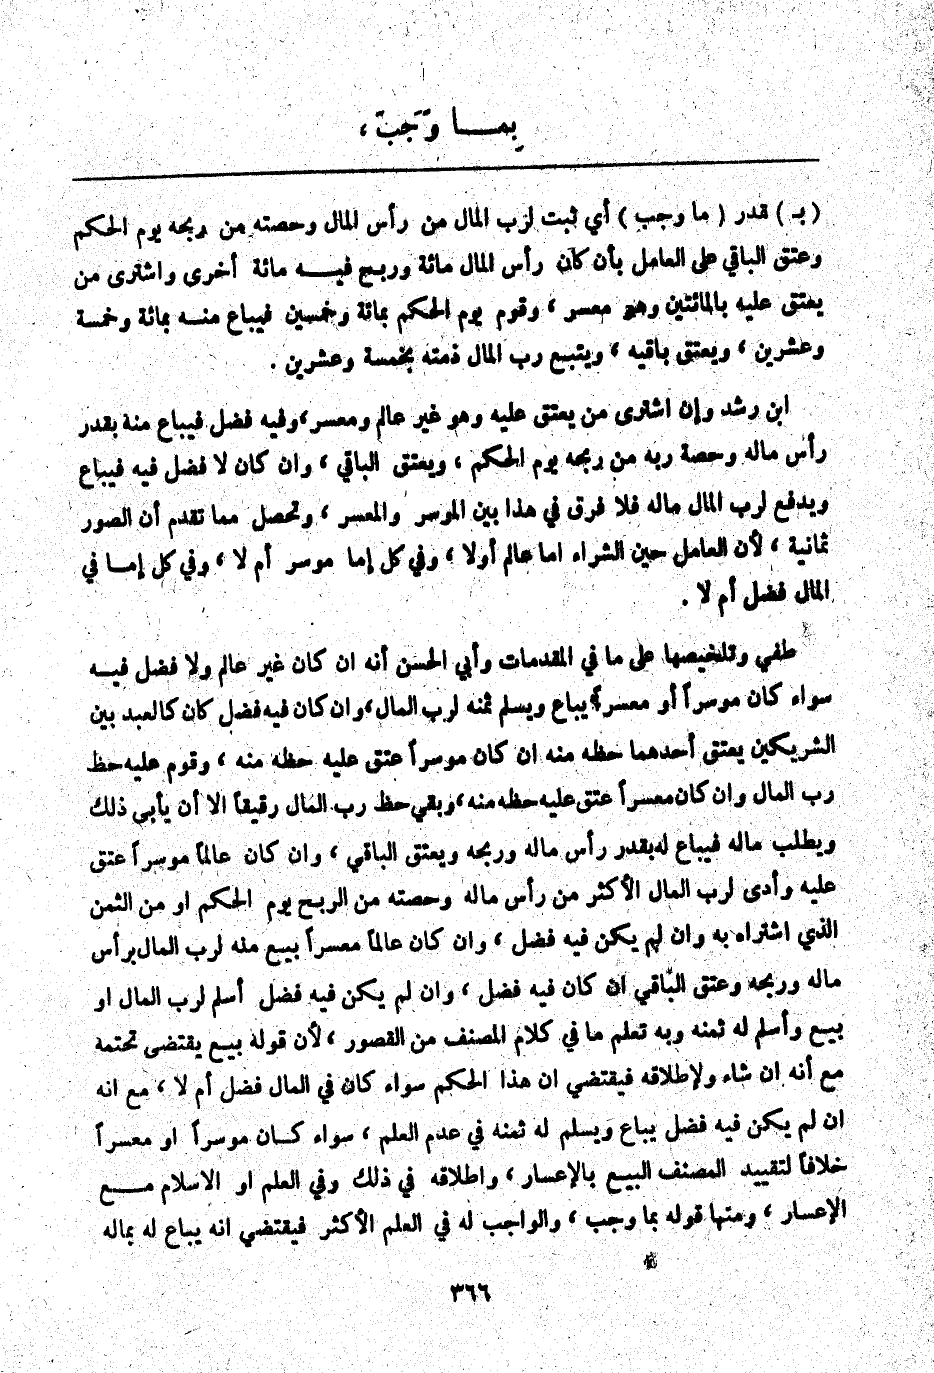 بِمـــا وَجَبَ ،
( بـ ) قدر ( ما وجب ) أي ثبت لرب المال من رأس المال وحصته من ربحه يوم الحكم
وعتق الباقي على العامل بأن كان رأس المال مائة وربح فيـــه مائة أخرى واشترى من
يعتق عليه بالمائتين وهو معسر ، وقوم يوم الحكم بمائة وخمسين فيباع منــه بمائة وخمسة
وعشرين ، ويعتق باقيه ، ويتبع رب المال ذمته بخمسة وعشرين .
ابن رشد وإن اشترى من يعتق عليه وهو غير عالم ومعسر،وفيه فضل فيباع منة بقدر
رأس ماله وحصة ربه من ربحه يوم الحكم ، ويعتق الباقي ، وان كان لا فضل فيه فيباع
ويدفع لرب المال ماله فلا فرق في هذا بين الموسر والمعسر ، وتحصل مما تقدم أن الصور
ثمانية ، لأن العامل حين الشراء اما عالم أولا ، وفي كل إما موسر أم لا ، وفي كل إمــا في
المال فضل أم لا .
طفي وتلخيصها على ما في المقدمات وأبي الحسن أنه ان كان غير عالم ولا فضل فيــه
سواء كان موسراً أو معسراً يباع ويسلم ثمنه لرب المال،وان كان فيه فضل كان كالعبد بين
الشريكين يعتق أحدهما حظه منه ان كان موسراً عتق عليه حظه منه ، وقوم عليه حظ
رب المال وان كان معسراً عتق عليه حظه منه،وبقي حظ رب المال رقيقاً الا أن يأبى ذلك
ويطلب ماله فيباع له بقدر رأس ماله وربحه ويعتق الباقي ، وان كان عالماً موسراً عتق
عليه وأدى لرب المال الأكثر من رأس ماله وحصته من الربح يوم الحكم او من الثمن
الذي اشتراه به وان لم يكن فيه فضل ، وان كان عالماً معسراً بيع منه لرب المال برأس
ماله وربحه وعتق الباقي ان كان فيه فضل ، وان لم يكن فيه فضل أسلم لرب المال او
بيع وأسلم له ثمنه وبه تعلم ما في كلام المصنف من القصور ، لأن قولة بيع يقتضى تحتمة
مع أنه ان شاء ولإطلاقه فيقتضي ان هذا الحكم سواء كان في المال فضل أم لا ، مع انه
ان لم يكن فيه فضل يباع ويسلم له ثمنه في عدم العلم ، سواء كــان موسراً او معسراً
خلافاً لتقييد المصنف البيع بالإعسار ، واطلاقه في ذلك وفي العلم او الاسلام مـــع
الإعسار ، ومنها قوله بما وجب ، والواجب له في العلم الأكثر فيقتضي انه يباع له بماله
٣٦٦